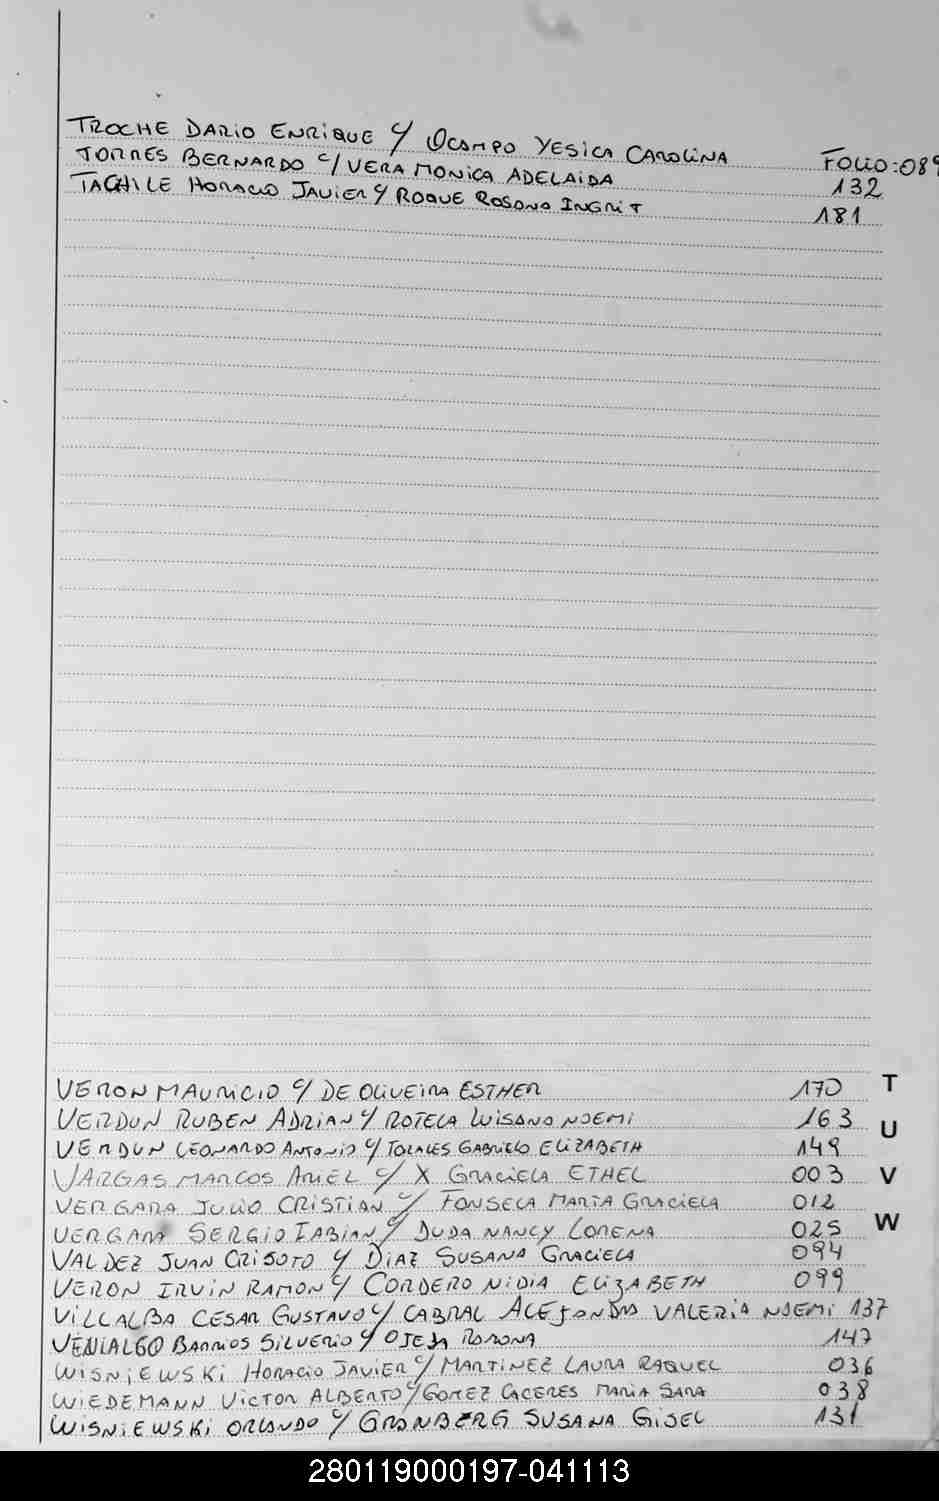 TROCHE DARIO ENRIQUE C/ OCAMPO YESICA CAROLINA FOLIO:089
TORRES BERNARDO C/ VERA MONICA ADELAIDA 132
TACHILE HORACIO JAVIER C/ ROQUE ROSANA INGRIT 181
VERON MAURICIO C/ DE OLIVEIRA ESTHER 170
T
VERDUN RUBEN ADRIAN C/ ROTELA LUISANA NOEMI 163
U
VERDUN LEONARDO ANTONIO C/ TORALES GABRIELA ELIZABETH 149
VARGAS MARCOS ARIEL C/ X GRACIELA ETHEL 003
V
VERGARA JULIO CRISTIAN C/ FONSECA MARIA GRACIELA 012
VERGARA SERGIO FABIAN C/ DUDA NANCY LORENA 025
W
VALDEZ JUAN CRISOTO C/ DIAZ SUSANA GRACIELA 094
VERON IRVIN RAMON C/ CORDERO NIDIA ELIZABETH 099
VILLALBA CESAR GUSTAVO C/ CABRAL VALERIA NOEMI 137
VENIALGO BARRIOS SILVERIO C/ OJEDA ROSANA 147
WISNIEWSKI HORACIO JAVIER C/ MARTINEZ LAURA RAQUEL 036
WIEDEMANN VICTOR ALBERTO C/ GOMEZ CACERES MARIA SARA 038
WISNIEWSKI ORLANDO C/ GRONBERG SUSANA GISEL 131
280119000197-041113